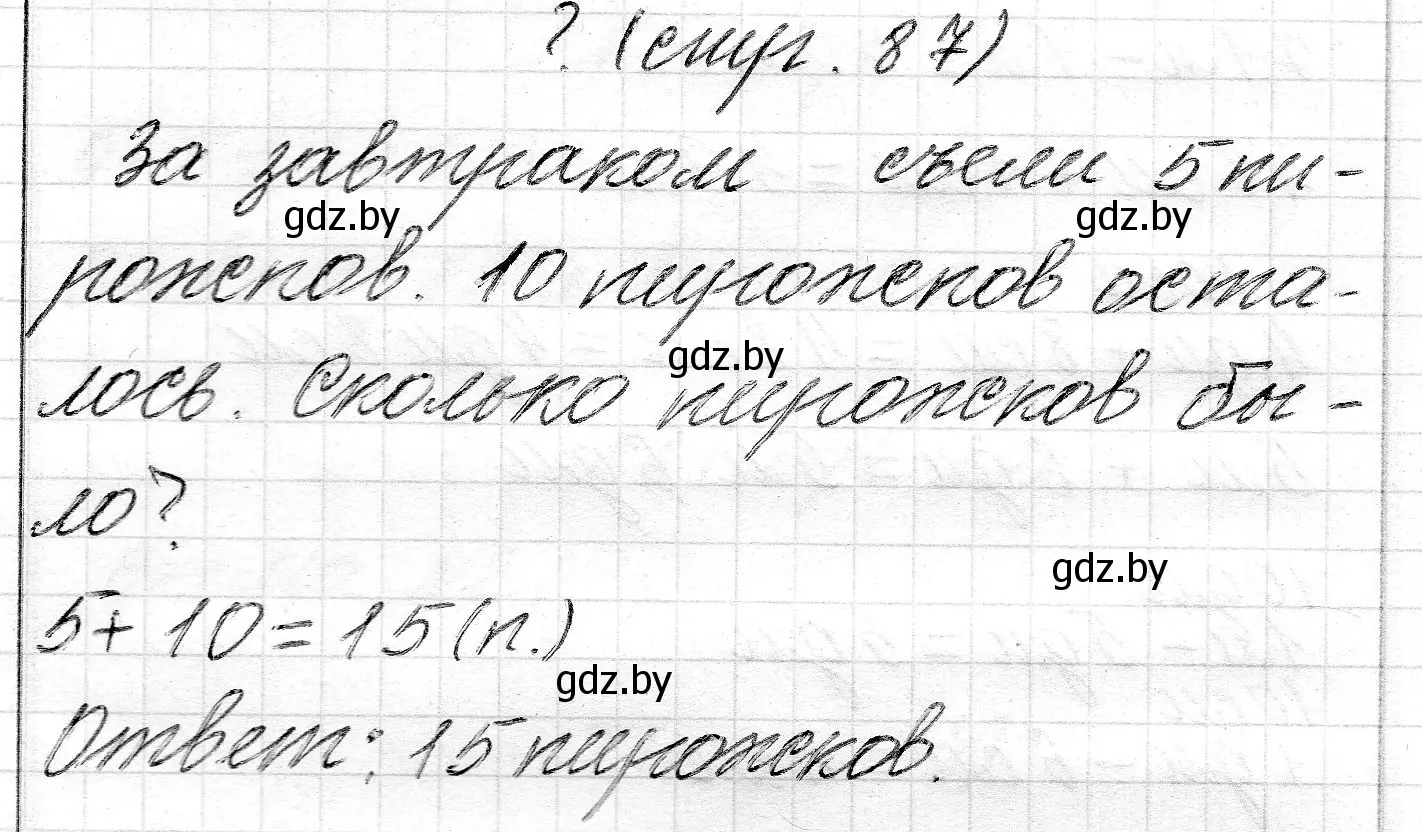 ? (стр. 87)
За завтраком съели 5 пи-
gdz.by gdz.by
рожков. 10 пирожков оста-
gdz.by
лось. Сколько пирожков бы-
ло?
gdz.by
5 + 10 = 15 (п.)
gdz.by
Ответ: 15 пирожков.